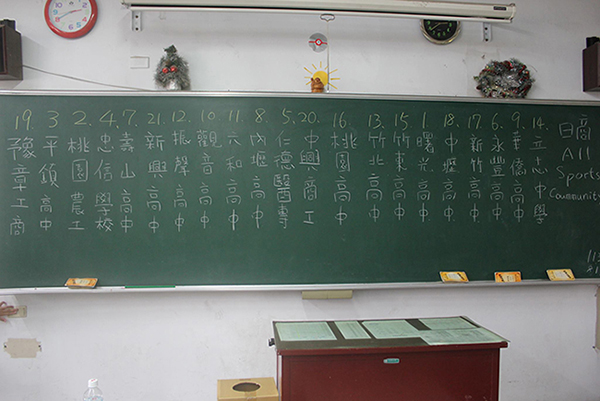 日商
All
Sports
Community
14. 立志中學
9. 華僑高中
6. 永豐高中
17. 新竹高中
18. 中壢高中
1. 曙光高中
15. 竹東高中
13. 竹北高中
16. 桃園高中
20. 中興商工
5. 仁德醫專
8. 內壢高中
11. 六和高中
10. 觀音高中
12. 振聲高中
21. 新興高中
7. 壽山高中
4. 忠信學校
2. 桃園農工
3. 平鎮高中
19. 豫章工商